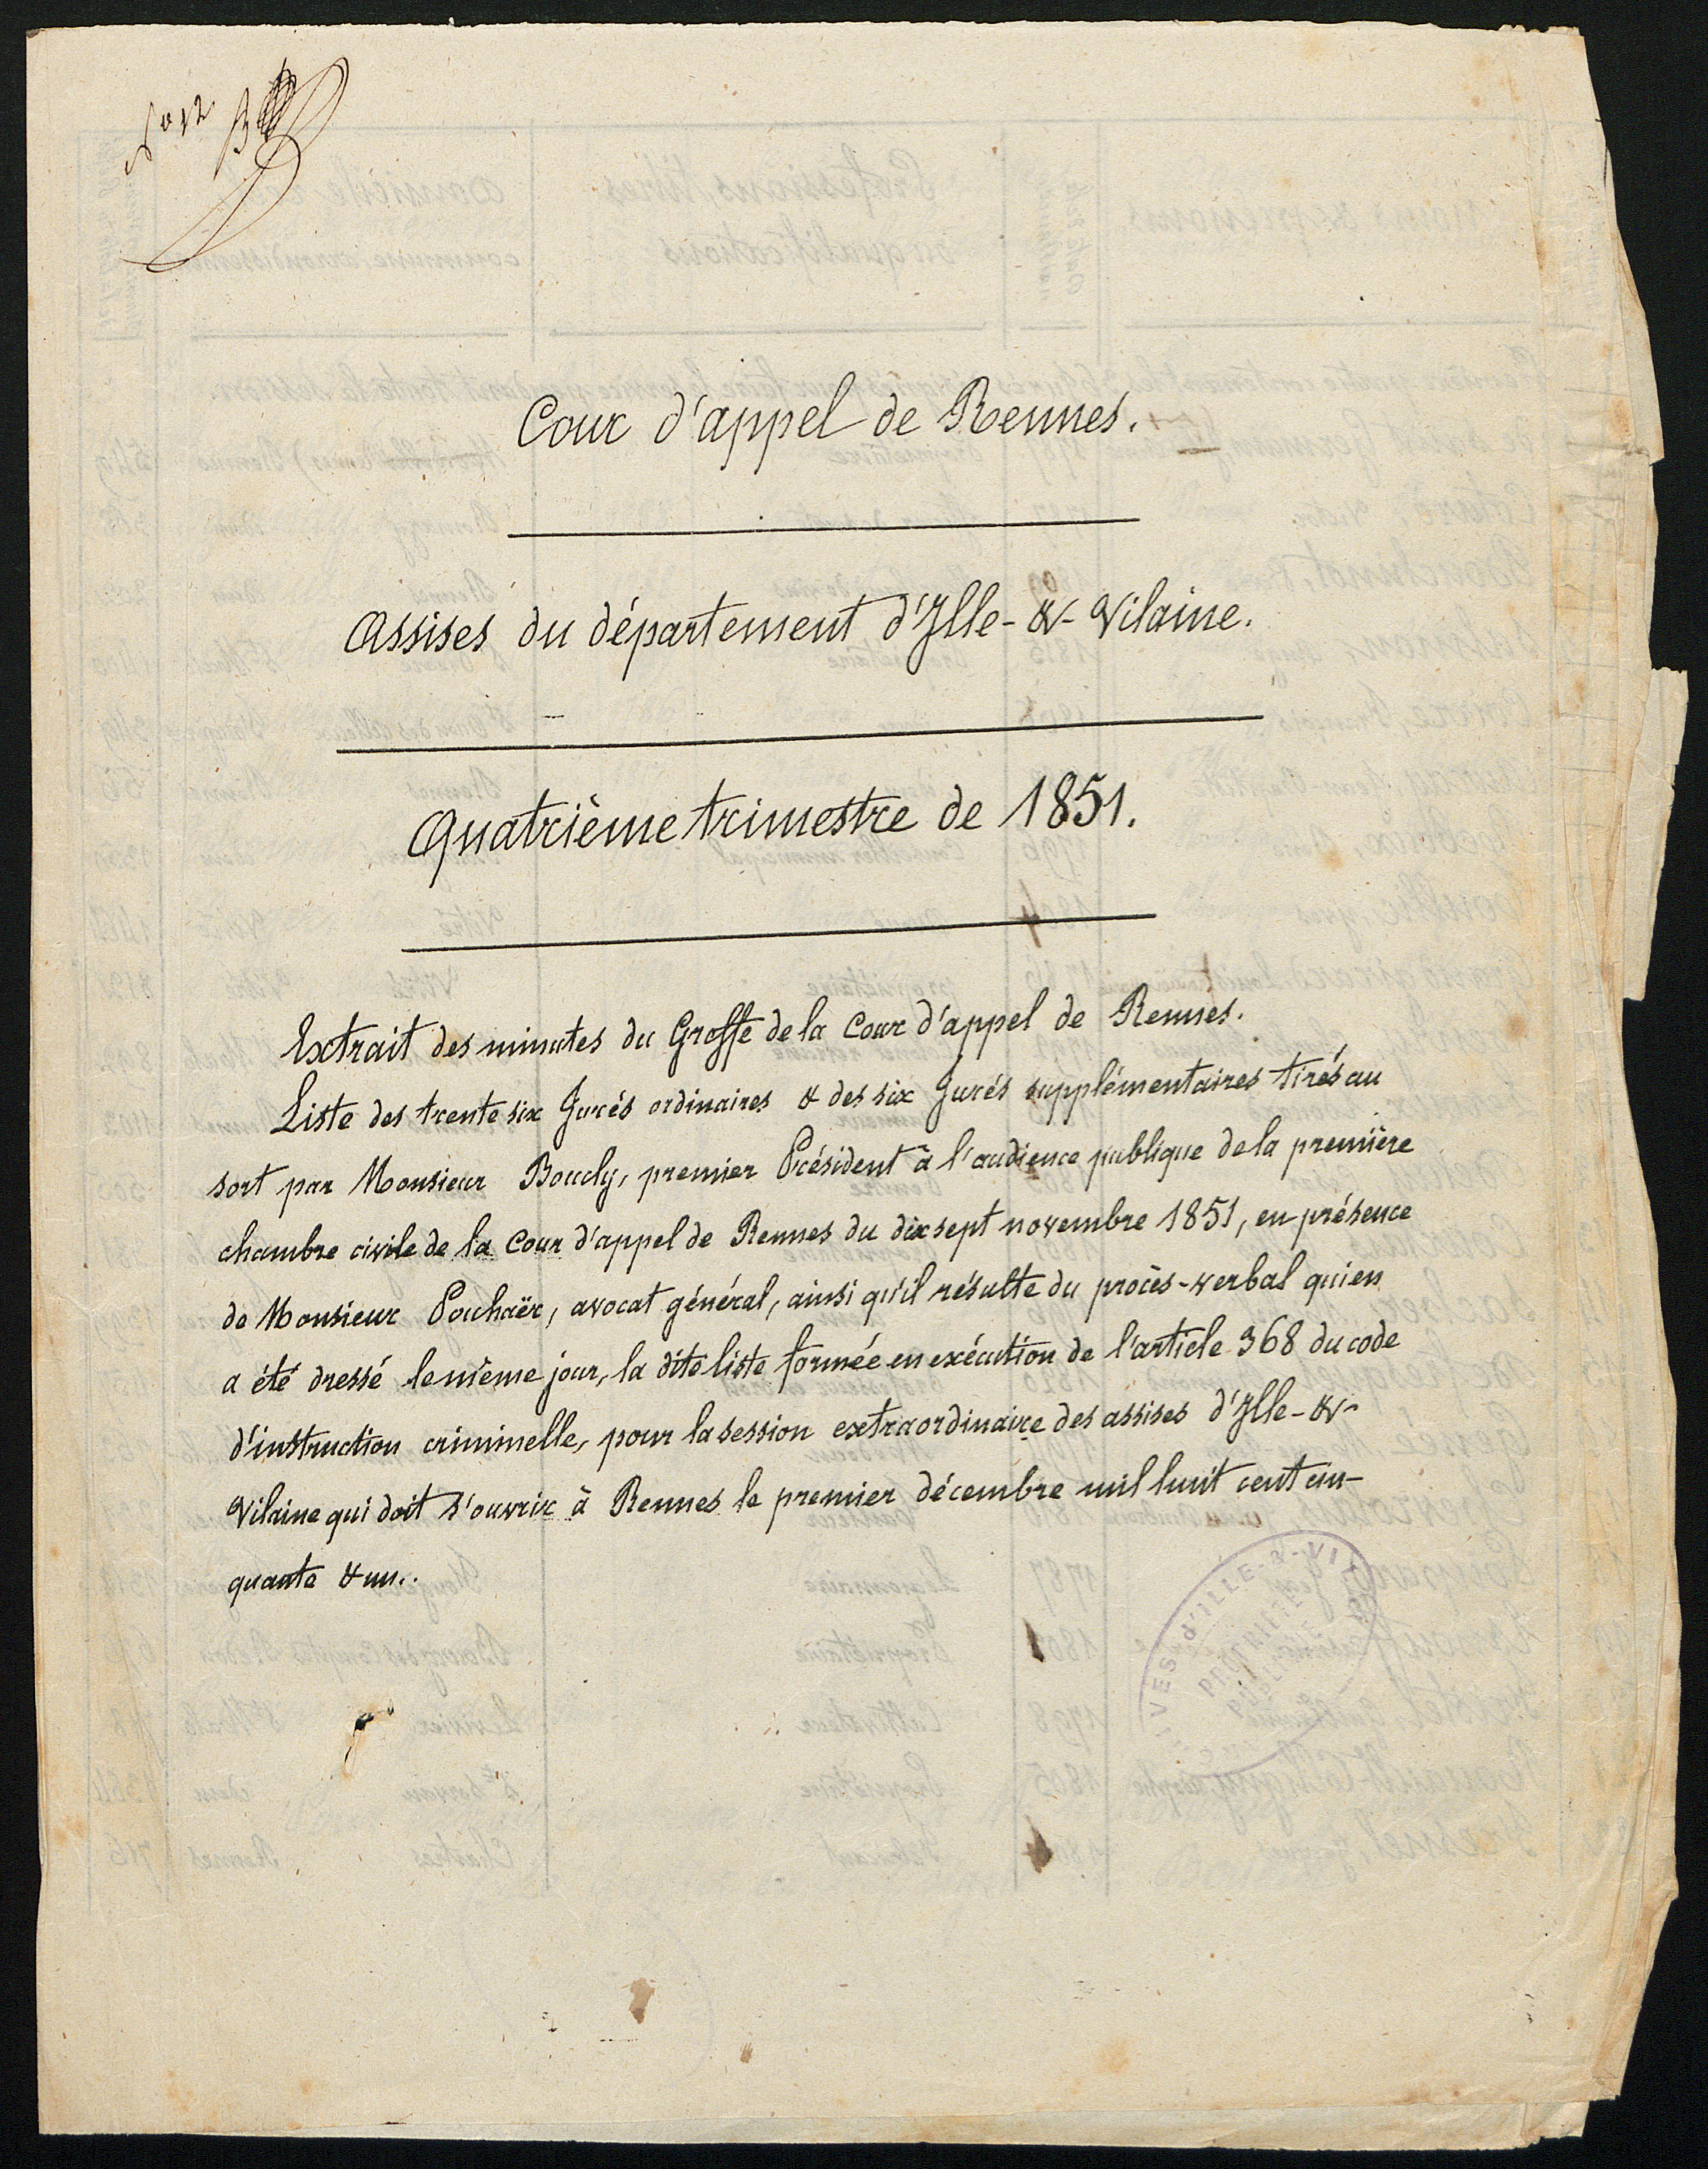 No 12
Cour d'appel de Rennes.
Assises du département d'Ille-&-Vilaine.
Quatrième trimestre de 1851.
Extrait des minutes du Greffe de la Cour d'appel de Rennes.
Liste des trente six Jurés ordinaires & des six Jurés supplémentaires tirés au
sort par Monsieur Boucly, premier Président à l'audience publique de la première
chambre civile de la Cour d'appel de Rennes du dix sept novembre 1851, en présence
de Monsieur Pouhaër, avocat général, ainsi qu'il résulte du procès-verbal qui en
a été dressé le même jour, la dite liste formée en exécution de l'article 368 du code
d'instruction criminelle, pour la session extraordinaire des assises d'Ille-&-
Vilaine qui doit s'ouvrir à Rennes le premier décembre mil huit cent cin-
quante & un..
D'ILLE-&-VI
PROPRIÉTÉ
PUBLIQUE